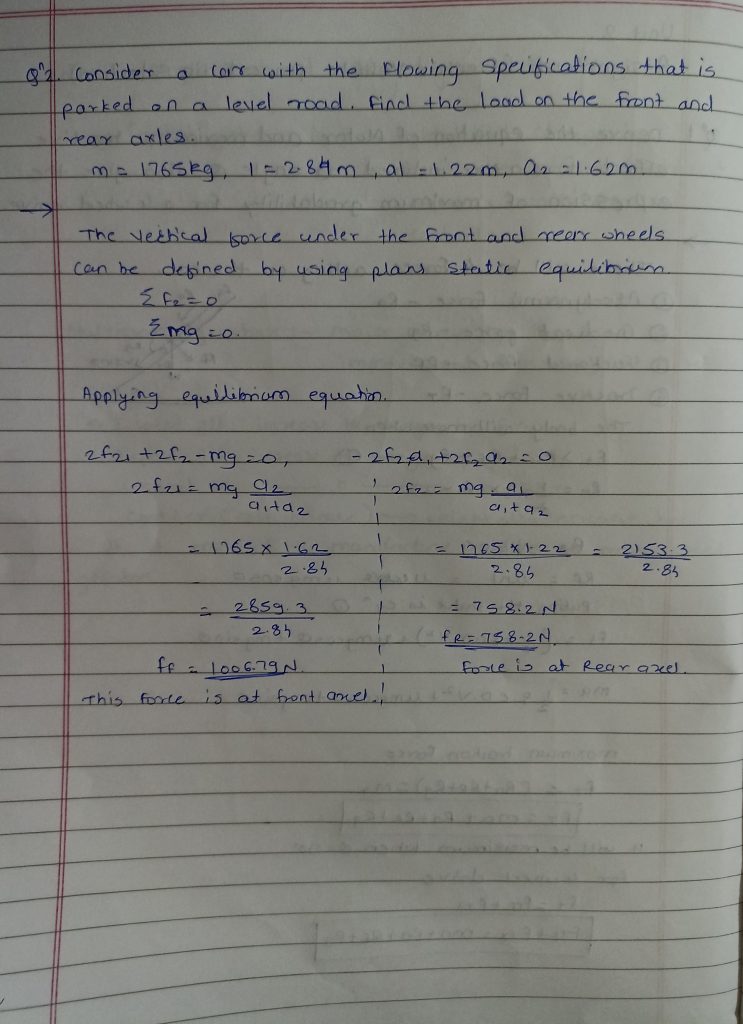 Qⁿ2. Consider a car with the Flowing Specifications that is
parked on a level road. find the load on the front and
rear axles.
m = 1765kg, l = 2.84m, a1 = 1.22m, a2 = 1.62m.
→
The vertical force under the front and rear wheels
can be defined by using plans static equilibrium.
Σ Fz = 0
Σ mg = 0.
Applying equilibrium equation.
2fz1 + 2fz - mg = 0, - 2fz a1 + 2fz a2 = 0
2fz1 = mg a2 / a1+a2 2fz = mg. a1 / a1+a2
= 1765 x 1.62 / 2.84 = 1765 x 1.22 / 2.84 = 2153.3 / 2.84
= 2859.3 / 2.84 = 758.2 N
fR = 758.2N.
fF = 1006.79 N. Force is at Rear axel.
This force is at front axel.